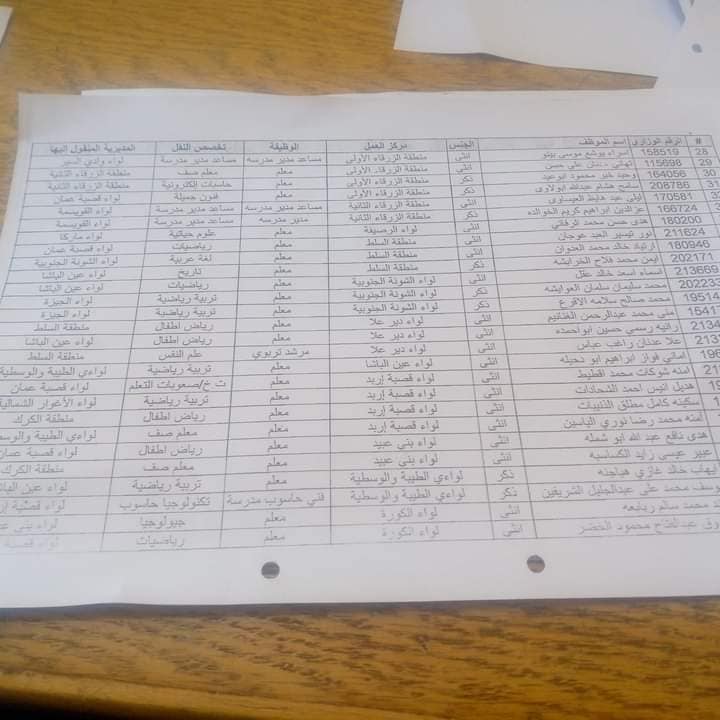 # الرقم الوزاري اسم الموظف الجنس مركز العمل الوظيفة تخصص النقل المديرية المنقول إليها
28 158519 اسراء يوشع موسى بينو انثى منطقة الزرقاء الأولى مساعد مدير مدرسة مساعد مدير مدرسة لواء وادي السير
29 115698 تهاني علي حسن انثى منطقة الزرقاء الأولى معلم معلم صف منطقة الزرقاء الثانية
30 164056 وحيد خير محمود ابوعيد ذكر منطقة الزرقاء الأولى معلم حاسبات إلكترونية منطقة الزرقاء الثانية
208786 سامح هشام عبدالله ابولاوي ذكر منطقة الزرقاء الأولى معلم فنون جميلة لواء قصبة عمان
170581 ليلى عبد العيساوي انثى منطقة الزرقاء الثانية مساعد مدير مدرسة مساعد مدير مدرسة لواء القويسمة
166724 عزالدين ابراهيم كريم الخوالده ذكر منطقة الزرقاء الثانية مدير مدرسة مساعد مدير مدرسة لواء القويسمة
180200 هدى حسن محمد انثى لواء الرصيفة معلم علوم حياتية لواء ماركا
211624 نور تيسير العبد عوجان انثى منطقة السلط معلم رياضيات لواء قصبة عمان
180946 ارتياد خالد محمد العدوان انثى منطقة السلط معلم لغة عربية لواء الشونة الجنوبية
202171 ايمن محمد فلاح الخرابشه ذكر منطقة السلط معلم تاريخ لواء عين الباشا
213669 اسماء اسعد خالد عقل انثى لواء الشونة الجنوبية معلم رياضيات لواء عين الباشا
محمد سليمان سلمان العوايشه ذكر لواء الشونة الجنوبية معلم تربية رياضية لواء الجيزة
محمد صالح سلامه الاقرع ذكر لواء الشونة الجنوبية معلم تربية رياضية لواء الجيزة
منى محمد عبدالرحمن انثى لواء دير علا معلم رياض اطفال منطقة السلط
رانيه رسمي حسين ابواحمده انثى لواء دير علا معلم رياض اطفال لواء عين الباشا
علا عدنان راغب عباس انثى لواء دير علا مرشد تربوي علم النفس منطقة السلط
اماني فواز ابراهيم ابو دحيله انثى لواء عين الباشا معلم تربية رياضية لواءي الطيبة والوسطية
امنه شوكات محمد انثى لواء قصبة إربد معلم ت خ/صعوبات التعلم لواء قصبة عمان
هديل انيس احمد الشحادات انثى لواء قصبة إربد معلم تربية رياضية لواء الأغوار الشمالية
سكينه كامل مطلق انثى لواء قصبة إربد معلم رياض اطفال منطقة الكرك
امنه محمد رضا نوري الياسين انثى لواء قصبة إربد معلم معلم صف لواءي الطيبة والوسط
هدى نافع عبد الله ابو شمله انثى لواء بني عبيد معلم رياض اطفال لواء قصبة عمان
عبير عيسى زايد الكساسبه انثى لواء بني عبيد معلم معلم صف منطقة الكرك
خالد غازي ذكر لواءي الطيبة والوسطية معلم تربية رياضية لواء عين الباش
وسف محمد علي عبدالجليل الشريفين ذكر لواءي الطيبة والوسطية فني حاسوب مدرسة تكنولوجيا حاسوب لواء قصبة إربد
محمد سالم ربابعه انثى لواء الكورة معلم جيولوجيا لواء بني
عبدالفتاح محمود الخضر انثى لواء الكورة معلم رياضيات لواء قصبة